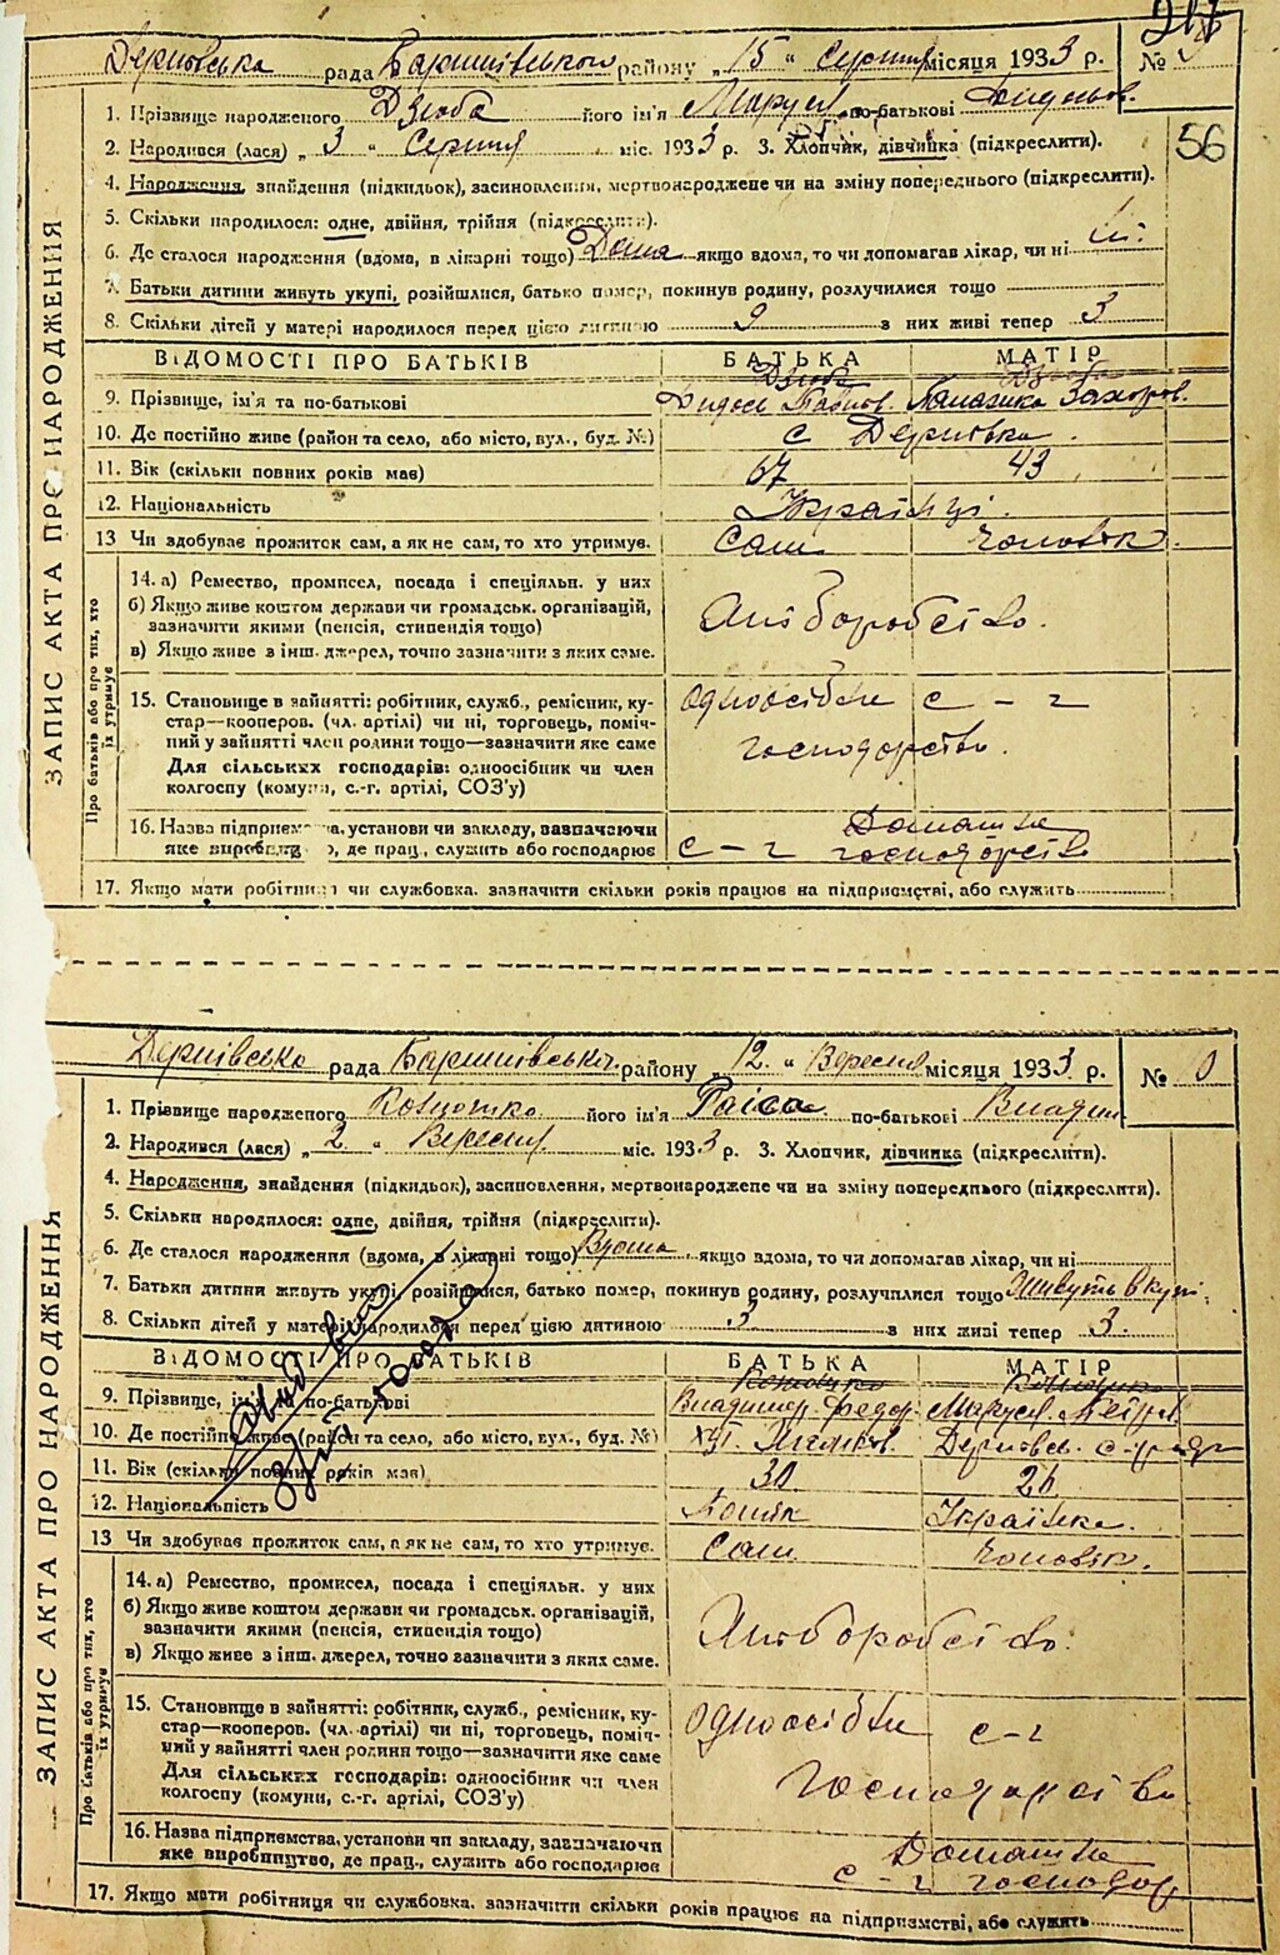 217
Дернівська рада Баришівського району „15“ Серпня місяця 1933 р. №
1. Прізвище народженого Дзюба його ім'я Маруся по-батькові
2. Народився (лася) „3“ Серпня міс. 1933 р. 3. Хлопчик, дівчинка (підкреслити).
56
4. Народження, знайдення (підкидьок), засиновлення, мертвонароджене чи на зміну попереднього (підкреслити).
5. Скільки народилося: одне, двійня, трійня (підкреслити).
6. Де сталося народження (вдома, в лікарні тощо) Дома якщо вдома, то чи допомагав лікар, чи ні ні.
7. Батьки дитини живуть укупі, розійшлися, батько помер, покинув родину, розлучилися тощо
8. Скільки дітей у матері народилося перед цією дитиною 9 з них живі тепер 3
ЗАПИС АКТА ПРО НАРОДЖЕННЯ
ВІДОМОСТІ ПРО БАТЬКІВ БАТЬКА МАТІР
Дзюба Дзюба
9. Прізвище, ім'я та по-батькові Захоров.
10. Де постійно живе (район та село, або місто, вул., буд. №) с Дернівка.
11. Вік (скільки повних років має) 67 43
12. Національність Українці.
13 Чи здобуває прожиток сам, а як не сам, то хто утримує. Сам чоловік.
Про батьків або про тих, хто їх утримує
14. а) Ремество, промисел, посада і спеціяльн. у них
б) Якщо живе коштом держави чи громадськ. організацій,
зазначити якими (пенсія, стипендія тощо) Хліборобство.
в) Якщо живе з інш. джерел, точно зазначити з яких саме.
15. Становище в зайнятті: робітник, служб., ремісник, ку- одноосібне с – г
стар—кооперов. (чл. артілі) чи ні, торговець, поміч-
ний у зайнятті член родини тощо—зазначити яке саме господарство.
Для сільських господарів: одноосібник чи член
колгоспу (комуни, с.-г. артілі, СОЗ'у)
16. Назва підприємства, установи чи закладу, зазначаючи Домашнє
яке виробництво, де прац., служить або господарює с – г господарство
17. Якщо мати робітниця чи службовка, зазначити скільки років працює на підприємстві, або служить
Дернівська рада Баришівського району „12.“ Вересня місяця 1933 р. № 10
1. Прізвище народженого його ім'я Раїса по-батькові Владим
2. Народився (лася) „2.“ Вересня міс. 1933 р. 3. Хлопчик, дівчинка (підкреслити).
4. Народження, знайдення (підкидьок), засиновлення, мертвонароджене чи на зміну попереднього (підкреслити).
5. Скільки народилося: одне, двійня, трійня (підкреслити).
6. Де сталося народження (вдома, в лікарні тощо) Вдома якщо вдома, то чи допомагав лікар, чи ні
7. Батьки дитини живуть укупі, розійшлися, батько помер, покинув родину, розлучилися тощо Живуть вкупі.
8. Скільки дітей у матері народилося перед цією дитиною 3 з них живі тепер 3.
ЗАПИС АКТА ПРО НАРОДЖЕННЯ
ВІДОМОСТІ ПРО БАТЬКІВ БАТЬКА МАТІР
9. Прізвище, ім'я та по-батькові Владимир Федор. Маруся Петр.
10. Де постійно живе (район та село, або місто, вул., буд. №) хут. Дернівсь. с-ради
11. Вік (скільки повних років має) 30 26
12. Національність Поляк Українка.
13 Чи здобуває прожиток сам, а як не сам, то хто утримує. Сам чоловік.
Про батьків або про тих, хто їх утримує
14. а) Ремество, промисел, посада і спеціяльн. у них
б) Якщо живе коштом держави чи громадськ. організацій,
зазначити якими (пенсія, стипендія тощо) Хліборобство.
в) Якщо живе з інш. джерел, точно зазначити з яких саме.
15. Становище в зайнятті: робітник, служб., ремісник, ку- одноосібне с–г
стар—кооперов. (чл. артілі) чи ні, торговець, поміч-
ний у зайнятті член родини тощо—зазначити яке саме
Для сільських господарів: одноосібник чи член господарство
колгоспу (комуни, с.-г. артілі, СОЗ'у)
16. Назва підприємства, установи чи закладу, зазначаючи Домашнє
яке виробництво, де прац., служить або господарює с – г господар
17. Якщо мати робітниця чи службовка, зазначити скільки років працює на підприємстві, або служить